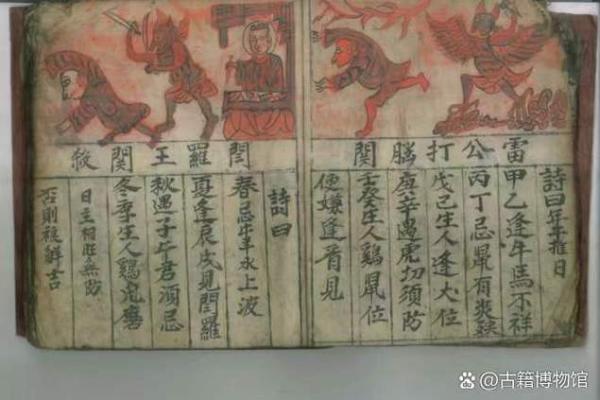 雷公打腦関
詩曰年年推日
甲乙逢牛馬不祥
丙丁忌鼠有災
戊己生人逢犬位
庚辛遇虎切須防
壬癸生人鷄鼠位
便嫌逢着見
閻羅王関殺
詩曰
春忌牛羊水上波
夏逢辰戌見閻羅
秋遇子午君須忌
冬季生人鷄兔磨
日主相旺無防
否則禳解吉
@古籍博物馆